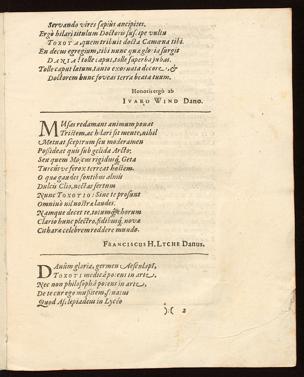 Servando vires sæpius ancipites.
Ergò hilari titulum Doctoris suscipe vultu
TOXOTA, quem tribuit docta Camœna tibi.
En decus egregium, tibi nunc qua gloria surgit
DANIA! tolle caput, tolle superba jubas.
Tolle caput lætum, tanto exornata decore, &
Doctorem hunc foveas terra beata tuum.
Honoris ergò ab
IVARO WIND Dano.
MUsas redamant animum ponat
Tristem, ac hilari sit mente, nihil
Metuat sceptrum seu moderamen
Possideat quis sub gelida Arcto;
Seu quem rigidus, Geta
Turcus ve ferox terreat hostem.
O quæ gaudes fontibus almis
Dulcis Clio, nectas sertum
Nunc TOXOTIO: Sine te prosunt
Omnium nil nostræ laudes.
Namque decet te, totumque chorum
Clario hunc plectro, fidibusque nova
Cithara celebrem reddere mundo.
FRANCISCUS H. LYCHE Danus.
DAnûm gloria, germen Aesculapî,
TOXOTI medicâ potens in arte,
Nec non philosophâ potens in arte,
De te cur ego mussitem, senatus
Quod Asclepiadem in Lycéo
):( 2